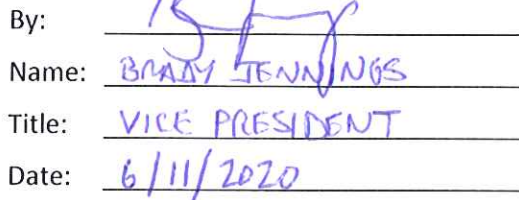 By:
Name: BRADY JENNINGS
Title: VICE PRESIDENT
Date: 6/11/2020